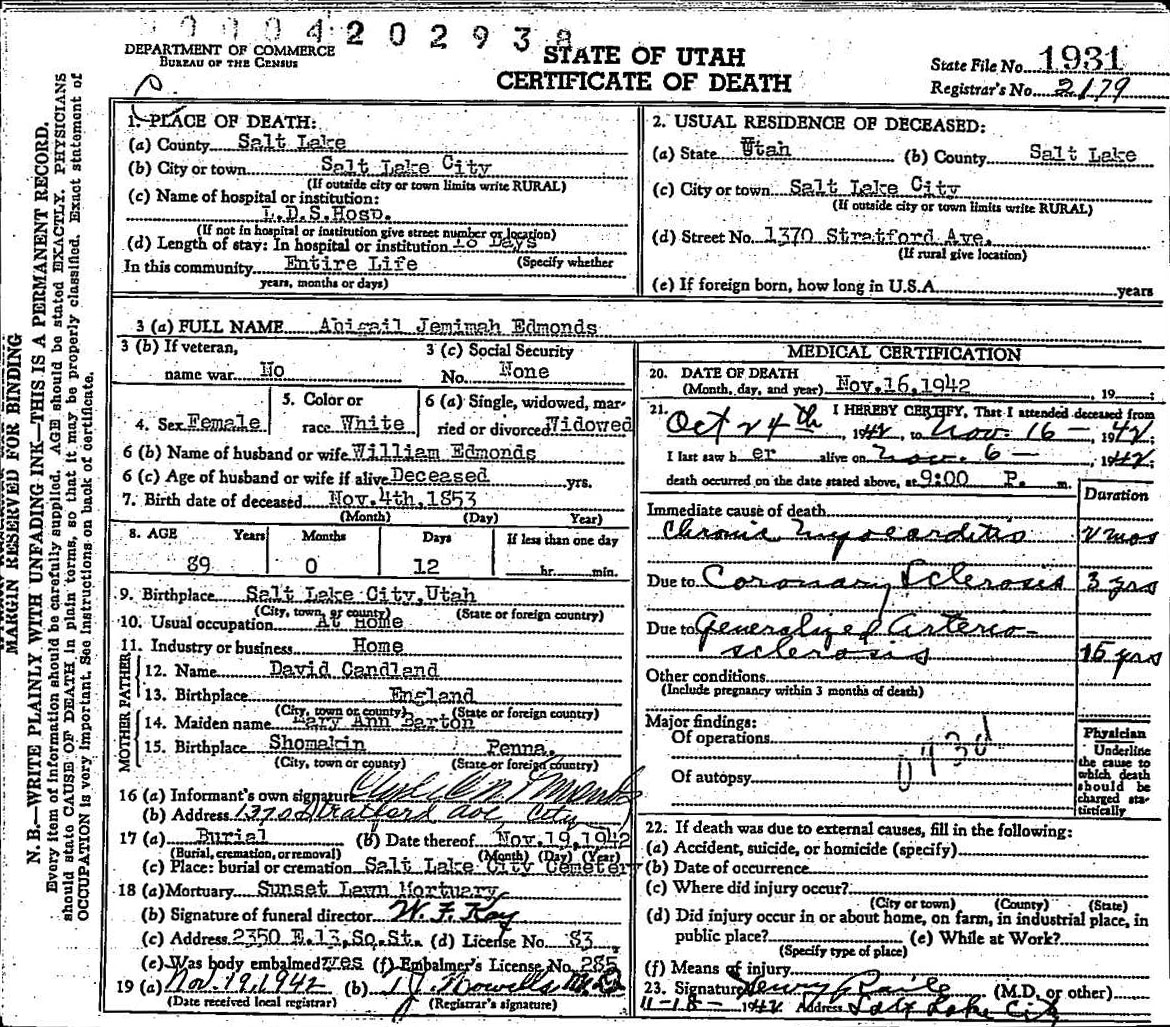 420293
DEPARTMENT OF COMMERCE
BUREAU OF THE CENSUS
STATE OF UTAH
CERTIFICATE OF DEATH
State File No. 1931
Registrar's No. 2179
MARGIN RESERVED FOR BINDING
N. B.—WRITE PLAINLY WITH UNFADING INK—THIS IS A PERMANENT RECORD.
Every item of information should be carefully supplied. AGE should be stated EXACTLY. PHYSICIANS
should state CAUSE OF DEATH in plain terms, so that it may be properly classified. Exact statement of
OCCUPATION is very important. See instructions on back of certificate.
1. PLACE OF DEATH:
(a) County Salt Lake
(b) City or town Salt Lake City
(If outside city or town limits write RURAL)
(c) Name of hospital or institution:
L.D.S.Hosp.
(If not in hospital or institution give street number or location)
(d) Length of stay: In hospital or institution Days
(Specify whether
In this community Entire Life
years, months or days)
2. USUAL RESIDENCE OF DECEASED:
(a) State Utah (b) County Salt Lake
(c) City or town Salt Lake City
(If outside city or town limits write RURAL)
(d) Street No. 1370 Stratford Ave.
(If rural give location)
(e) If foreign born, how long in U.S.A. years
3 (a) FULL NAME Abigail Jemimah Edmonds
3 (b) If veteran,
name war No
3 (c) Social Security
No. None
4. Sex Female
5. Color or
race White
6 (a) Single, widowed, mar-
ried or divorced Widowed
6 (b) Name of husband or wife William Edmonds
6 (c) Age of husband or wife if alive Deceased yrs.
7. Birth date of deceased Nov.4th,1853
(Month) (Day) Year)
8. AGE Years Months Days If less than one day
89 0 12 hr. min.
9. Birthplace Salt Lake City,Utah
(City, town, or county) (State or foreign country)
10. Usual occupation At Home
11. Industry or business Home
FATHER
12. Name David Candland
13. Birthplace England
(City, town or county) (State or foreign country)
MOTHER
14. Maiden name Mary Ann Barton
15. Birthplace Shomakin Penna.
(City, town or county) (State or foreign country)
16 (a) Informant's own signature
(b) Address 1370 Stratford Ave City
17 (a) Burial (b) Date thereof Nov.19,1942
(Burial, cremation, or removal) (Month) (Day) (Year)
(c) Place: burial or cremation Salt Lake City Cemetery
18 (a) Mortuary Sunset Lawn Mortuary
(b) Signature of funeral director W. F. Kay
(c) Address 2350 E.13,So.St. (d) License No. 83
(e) Was body embalmed? yes (f) Embalmer's License No. 285
19 (a) Nov. 19, 1942 (b)
(Date received local registrar) (Registrar's signature)
MEDICAL CERTIFICATION
20. DATE OF DEATH
(Month, day, and year) Nov.16,1942 , 19 ;
21. I HEREBY CERTIFY, That I attended deceased from
Oct 24th, 1942, to Nov. 16 —, 1942,
I last saw h er alive on Nov. 6 —, 1942
death occurred on the date stated above, at 9:00 P. m.
Duration
Immediate cause of death
Chronic Myocarditis 2 mos
Due to Coronary Sclerosis 3 yrs
Due to Generalized Arterio-
sclerosis 15 yrs
Other conditions
(Include pregnancy within 3 months of death)
Major findings:
Of operations
Of autopsy
Physician
Underline
the cause to
which death
should be
charged sta-
tistically
22. If death was due to external causes, fill in the following:
(a) Accident, suicide, or homicide (specify)
(b) Date of occurrence
(c) Where did injury occur?
(City or town) (County) (State)
(d) Did injury occur in or about home, on farm, in industrial place, in
public place? (e) While at Work?
(Specify type of place)
(f) Means of injury
23. Signature Henry Raile (M.D. or other)
11-18- 1942 Address Salt Lake City